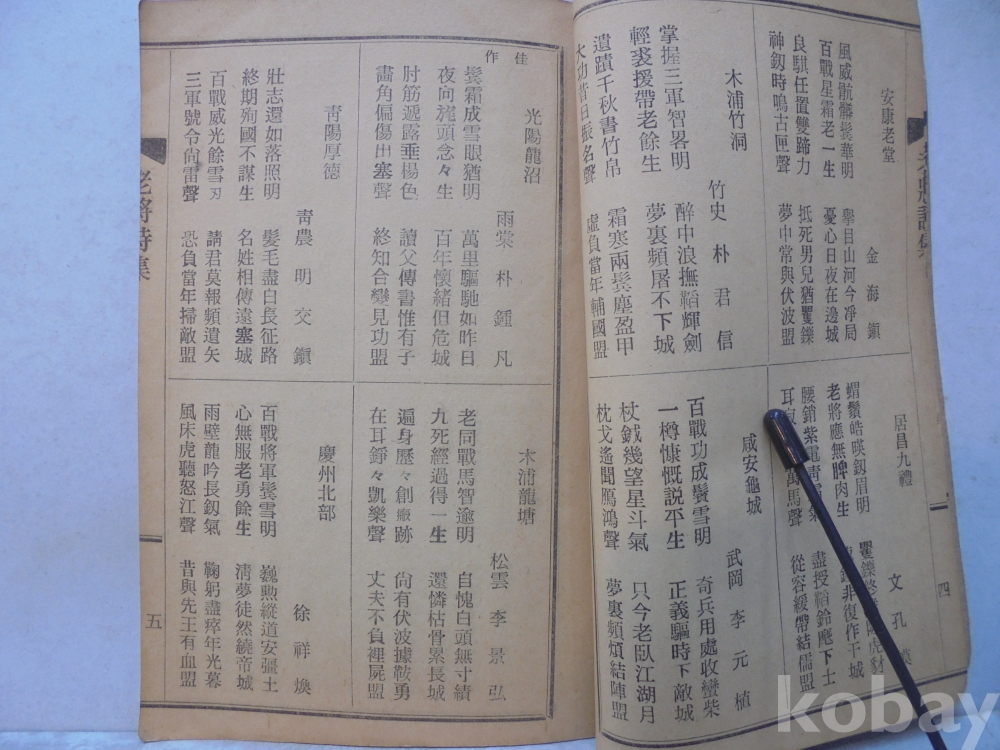 安康老堂
金海鎭
風威骯髒鬂華明 擧目山河今凈局
百戰星霜老一生 憂心日夜在邊城
良騏任置雙蹄力 抵死男兒猶矍鑠
神釰時鳴古匣聲 夢中常與伏波盟
居昌九禮
文孔
蝟鬚皓暎釰眉明
老將應無脾肉生 非復作干城
腰銷紫電靑 盡授鞱鈴麾下士
耳 萬馬聲 從容緩帶結儒盟
四
木浦竹洞
竹史 朴君信
掌握三軍智畧明 醉中浪撫鞱輝劍
輕裘援帶老餘生 夢裏頻屠不下城
遺蹟千秋書竹帛 霜寒兩鬂塵盈甲
大功昔日振名聲 虛負當年輔國盟
咸安龜城
武岡 李元植
百戰功成鬢雪明 奇兵用處收蠻柴
一樽慷慨説平生 正義驅時下敵城
杖鉞幾望星斗氣 只今老臥江湖月
枕戈遙聞雁鴻聲 夢裏頻煩結陣盟
佳作
光陽龍沼
雨棠 朴鍾凡
鬂霜成雪眼猶明 萬里驅馳如昨日
夜向旄頭念々生 百年懷緖但危城
肘筋遞露垂楊色 讀父傳書惟有子
畵角偏傷出塞聲 終知合變見功盟
木浦龍塘
松雲 李景弘
老同戰馬智逾明 自愧白頭無寸績
九死經過得一生 還憐枯骨累長城
遍身歷々創瘢跡 尙有伏波據鞍勇
在耳錚々凱樂聲 丈夫不負裡屍盟
靑陽厚德
靑農 明交鎭
壯志還如落照明 髮毛盡白長征路
終期殉國不謀生 名姓相傳遠塞城
百戰威光餘雪刃 請君莫報頻遺矢
三軍號令尙雷聲 恐負當年掃敵盟
慶州北部
徐祥煥
百戰將軍鬂雪明 巍勲縱道安彊土
心無服老勇餘生 淸夢徒然繞帝城
雨壁龍吟長釰氣 鞠躬盡瘁年光暮
風床虎聽怒江聲 昔與先王有血盟
老將詩集
五
kobay